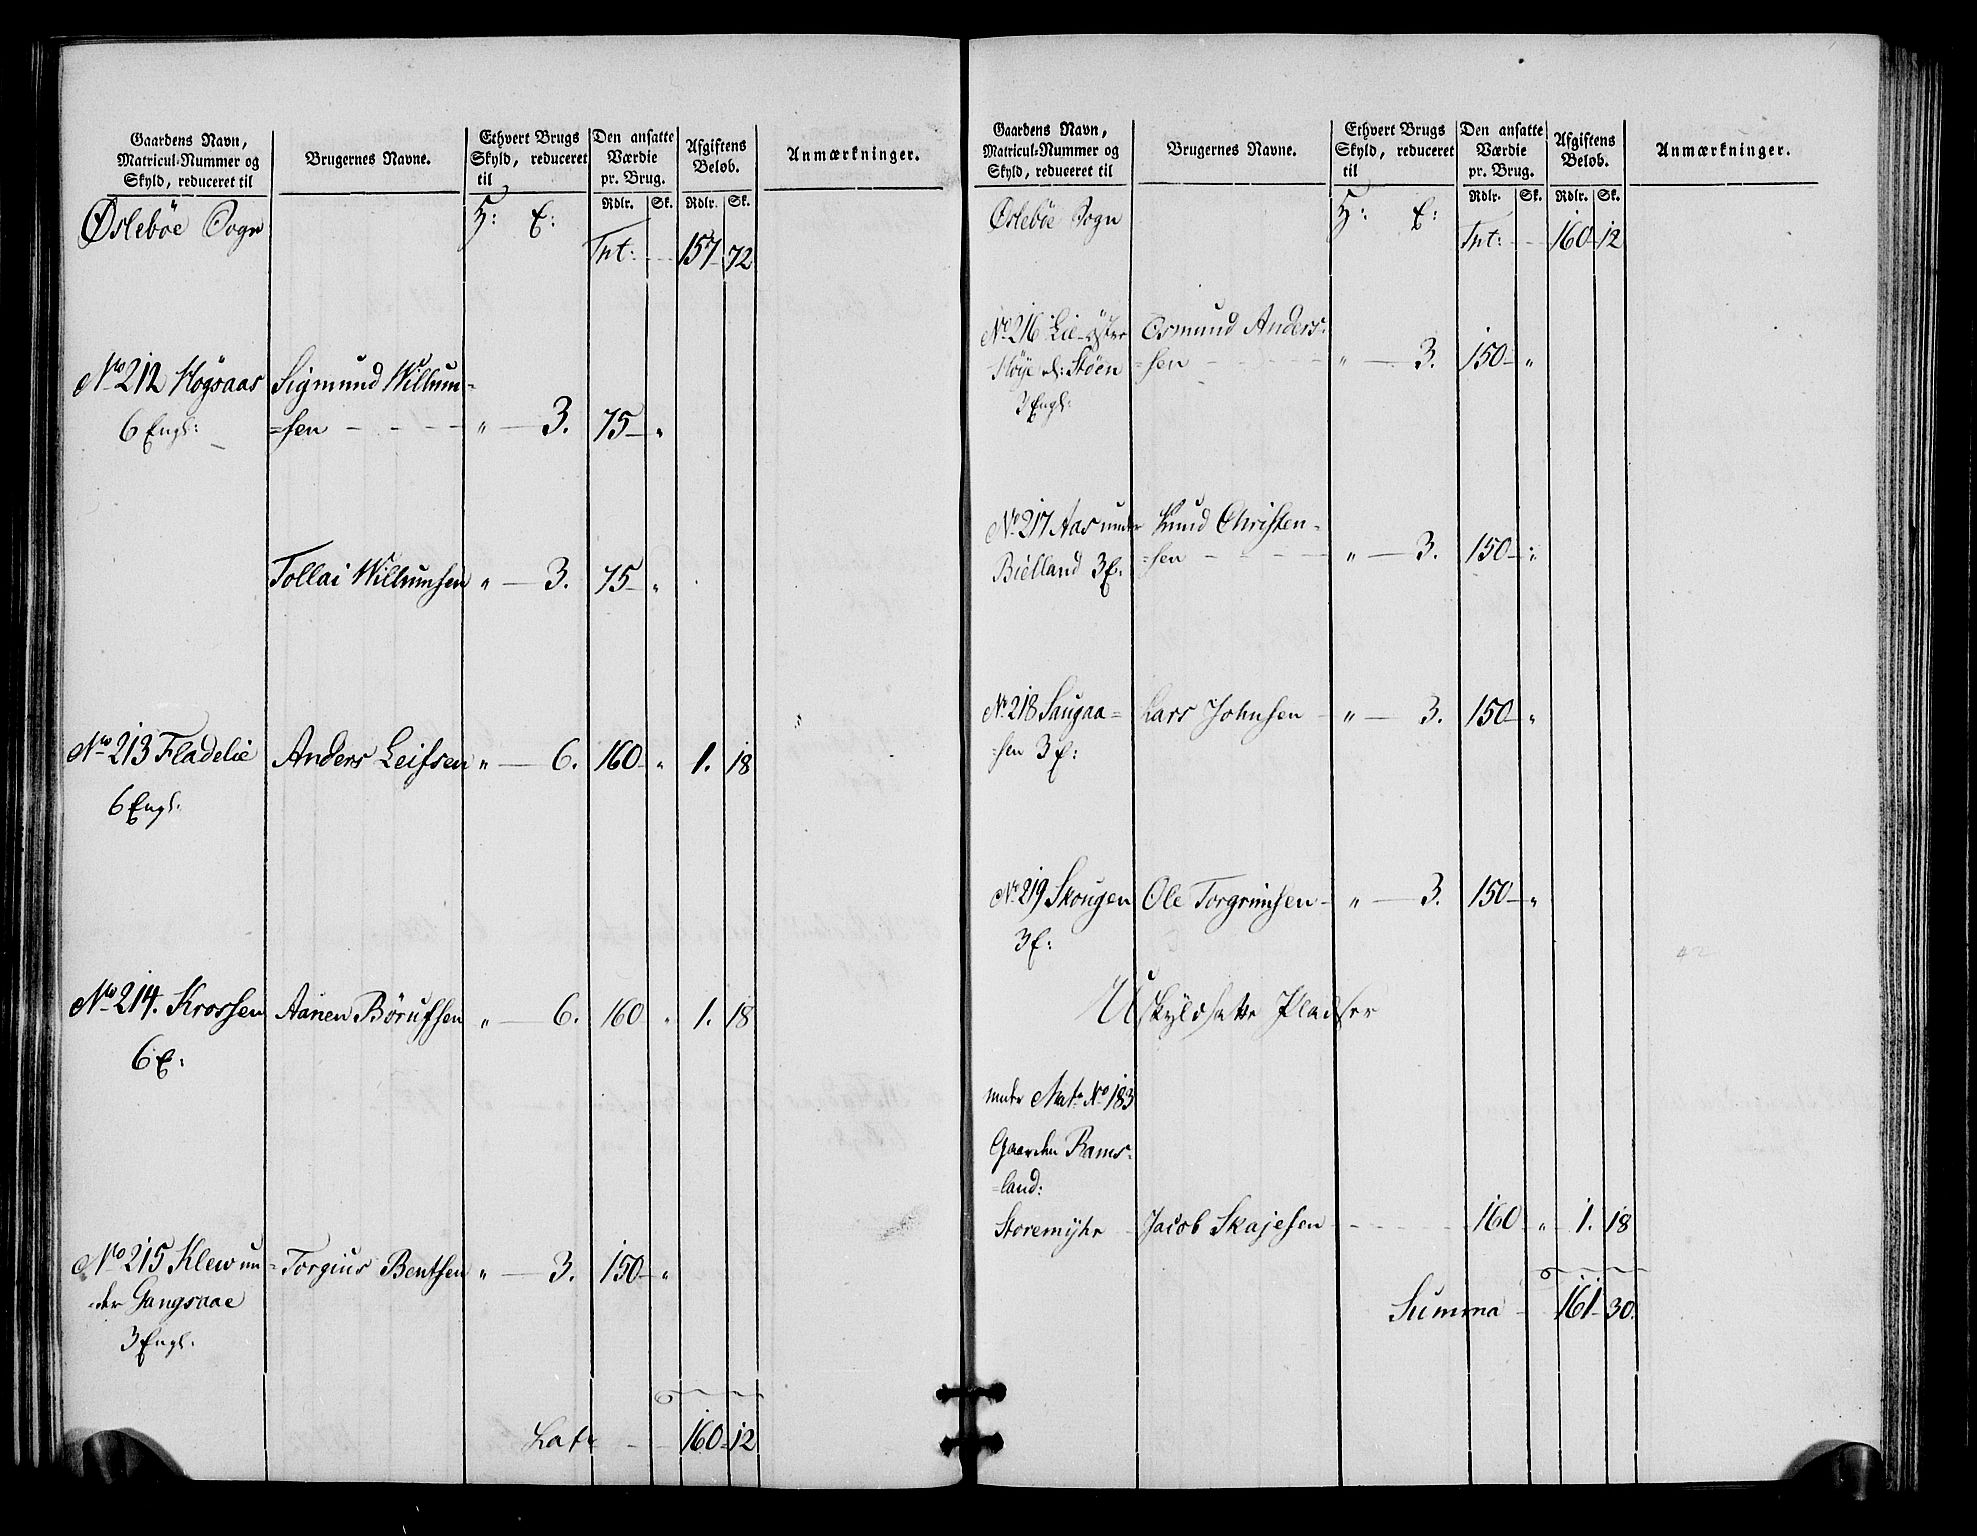 Gaardens Navn,
Matricul-Nummer og
Skyld, reduceret til
Brugernes Navne.
Ethvert Brugs
Skyld, reduceret
til
Den ansatte
Værdie
pr. Brug.
Afgiftens
Beløb.
Anmærkninger.
Rdlr. Sk. Rdlr. Sk.
Øslebøe Sogn H: E:
Trt: 157 72
No 212 Høgsaas Sigmund Willum=
6 Engl: =sen " 3. 75 "
Tollai Willumsen " 3. 75 "
No 213 Fladelie Anders Leifsen " 6. 160 " 1. 18
6 Engl:
No 214. Krossen Aanen Børufsen " 6. 160 " 1. 18
6 E:
No 215 Klew un= Torgius Bentsen " 3. 150 "
=der Gangsaae
3 Engl:
Lat: 160 12
Gaardens Navn,
Matricul-Nummer og
Skyld, reduceret til
Brugernes Navne.
Ethvert Brugs
Skyld, reduceret
til
Den ansatte
Værdie
pr. Brug.
Afgiftens
Beløb.
Anmærkninger.
Rdlr. Sk. Rdlr. Sk.
Øslebøe Sogn H: E:
Trt: 160 12
No 216 Lie øster Osmund Anders=
Høye el: Støen =sen " 3. 150 "
3 Engl:
No 217 Aas under Knud Christen=
Bielland 3 E: =sen " 3. 150 "
No 218 Saugaa= Lars Johnsen " 3. 150 "
=sen 3 E:
No 219 Skougen Ole Torgrimsen " 3. 150 "
3 E:
Uskyldsatte Pladser
under Mat: No 183
Gaarden Rams=
=land:
Storemyhr Jacob Skajesen 160 " 1. 18
Summa 161 30.